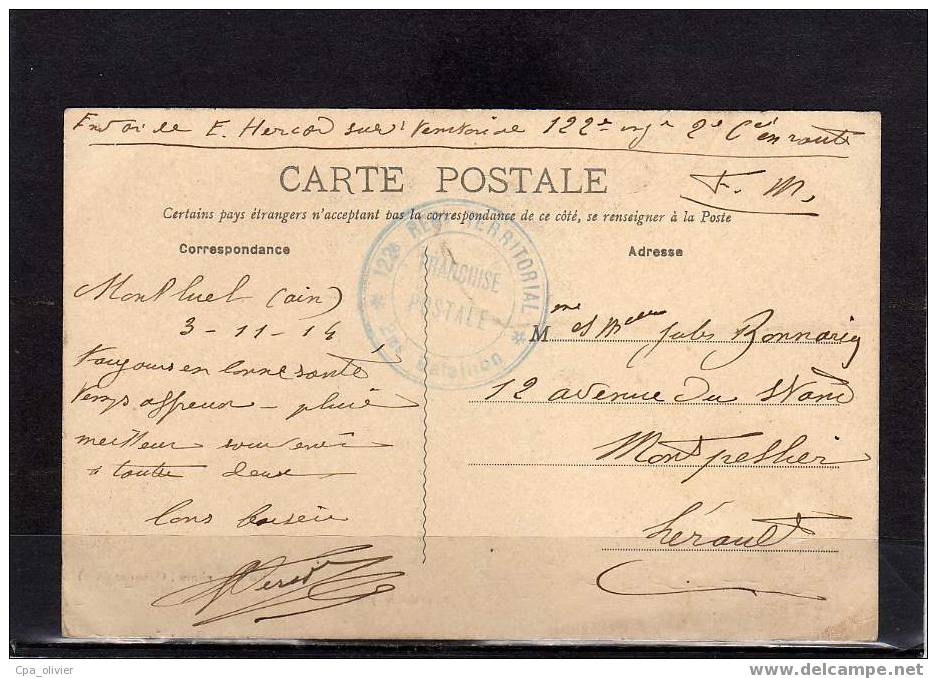 Envoi de E. Hercod 122e 2e Cie en route
CARTE POSTALE
F. M.
Certains pays étrangers n'acceptent pas la correspondance de ce côté, se renseigner à la Poste
Correspondance
Adresse
122e REGt TERRITORIAL
FRANCHISE
POSTALE
2me Bataillon
Montluel (ain)
3-11-14
Toujours en bonne santé
temps affreux - pluie
meilleur souvenir
a toute deux
bons baisers
Mme et Melle Jules Bonnariq
12 avenue du Stand
Montpellier
hérault
Cpa_olivier
www.delcampe.net